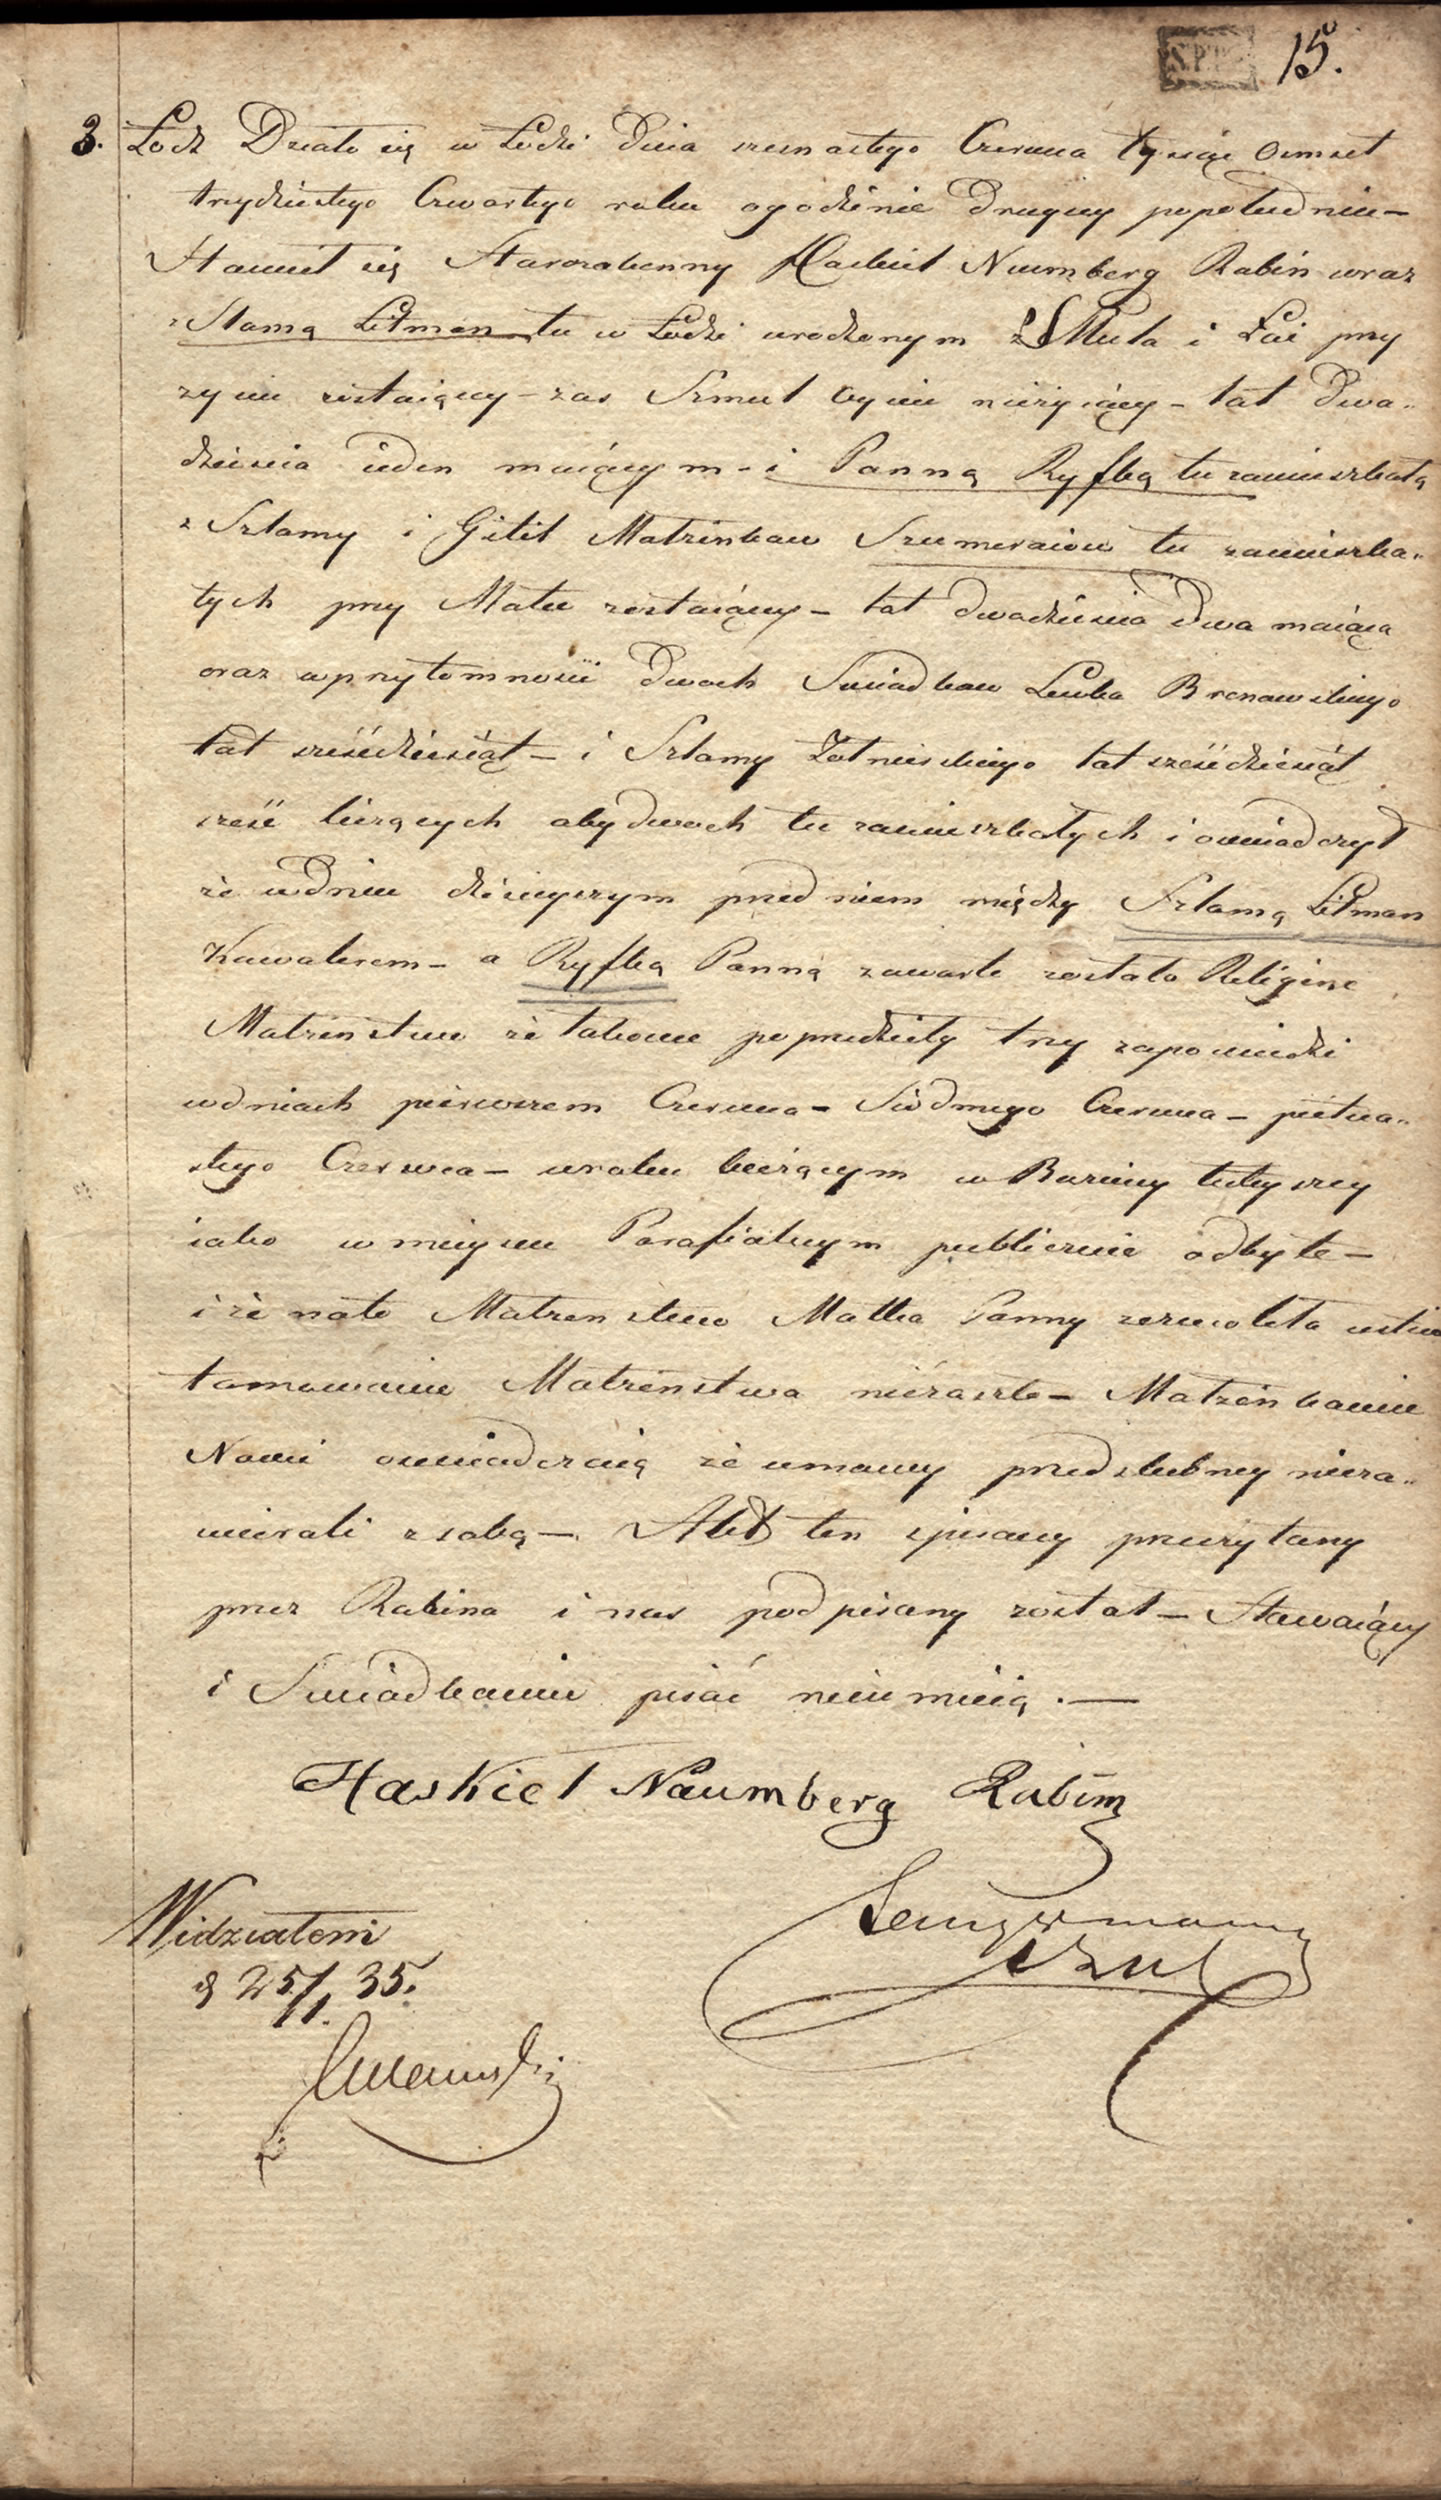 15.
3. Łodz Działo się w Łodzi Dnia szesnastego Czerwca tysiąc osmset
trzydziestego Czwartego roku ogodzinie Drugiey popołudniu –
Stawił się Starozakonny Haskiel Naumberg Rabin wraz
z Slamą Litman tu w Łodzi urodzonym z SMula i Łai przy
zyciu zostaiący – zas Szmul oyciu nieżyiący – lat Dwa-
dziescia ieden maiącym – i Panną Ryfką tu zamieszkałą
z Szlamy i Gitil Małżonkow Szumeraiow tu zamieszka-
łych przy Matce zostaiący – lat dwadziescia Dwa maiąca
oraz wprzytomnosci Dwoch Swiadkow Lewka Bronowskiego
lat sześcdziesiąt – i Szlamy Zotnierskiego lat sześcdziesiąt
sześć liczących obydwoch tu zamieszkałych i oswiadczył
że wdniu dzisieyszym przed niem między Szlamą Litman
Kawalerem – a Ryfką Panną zawarte zostało Religine
Małżenstwo że takowe poprzedziły trzy zapowiedzi
wdniach pierwszem Czerwca – Siodmego Czerwca – pietna-
stego Czerwca – wroku bieżącym w Boznicy tuteyszey
iako w mieyscu Parafialnym publicznie odbyte –
i że nato Małzenstwo Matka Panny zezwoliła ustnie
tamowanie Małżenstwa niezaszło – Małżonkowie
Nowi oswiadczaią że umowy przedslubney nieza-
wierali z sobą – Akt ten spisany przeczytany
przez Rabina i nas podpisany został – Stawaiący
i Swiadkowie pisać nieumieią. –
Haskiel Naumberg Rabin
Widziałem
d 25/1. 35.